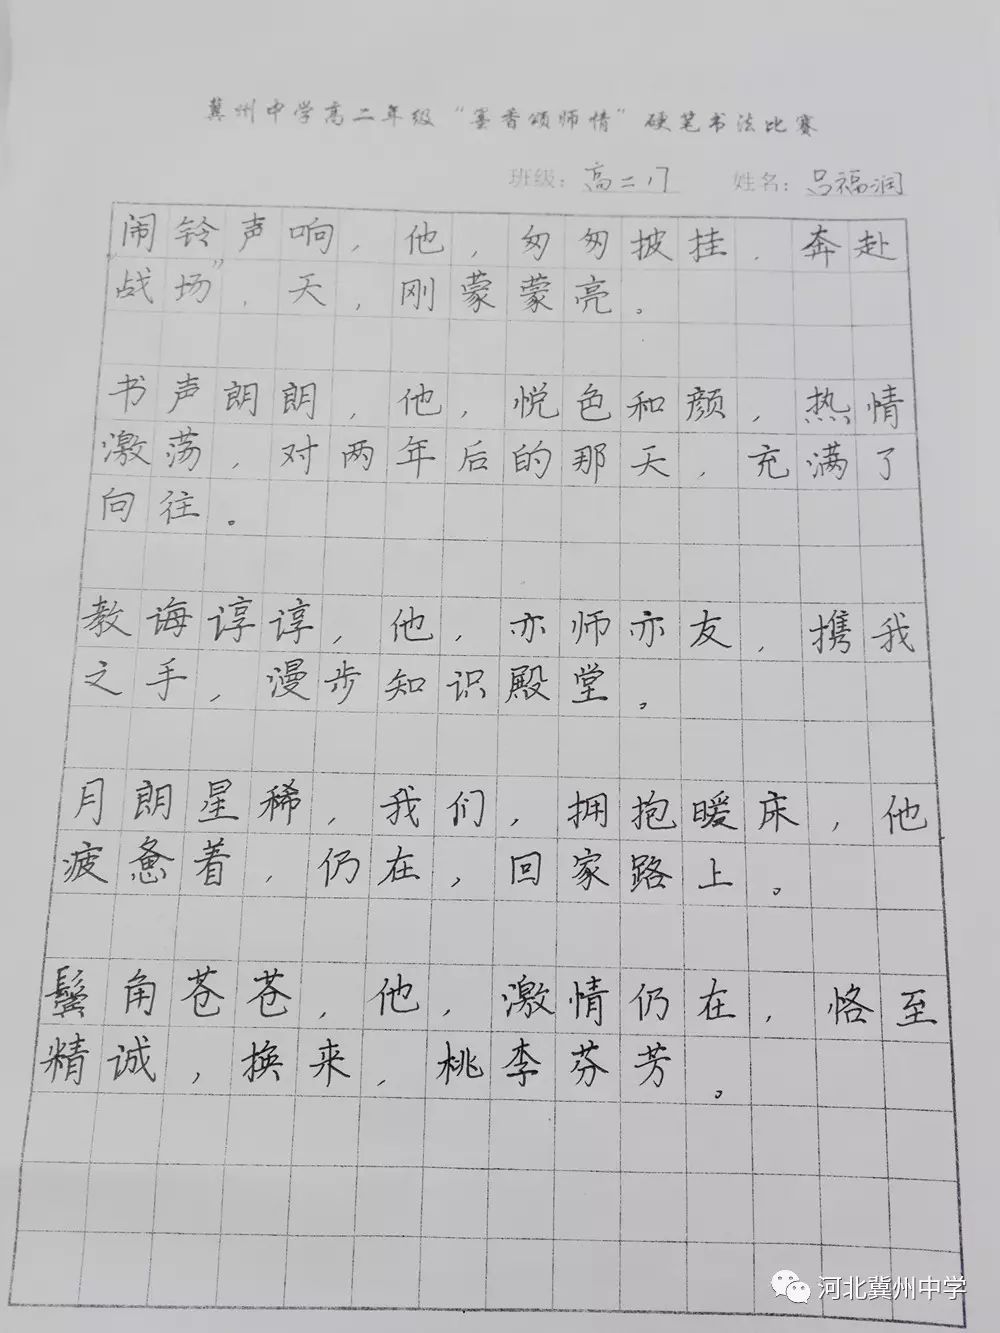 冀州中学高二年级“墨香颂师情”硬笔书法比赛
班级：高二17 姓名：吕福润
闹铃声响，他，匆匆披挂，奔赴
“战场”，天，刚蒙蒙亮。
书声朗朗，他，悦色和颜，热情
激荡，对两年后的那天，充满了
向往。
教诲谆谆，他，亦师亦友，携我
之手，漫步知识殿堂。
月朗星稀，我们，拥抱暖床，他
疲惫着，仍在，回家路上。
鬓角苍苍，他，激情仍在，恪至
精诚，换来，桃李芬芳。
河北冀州中学